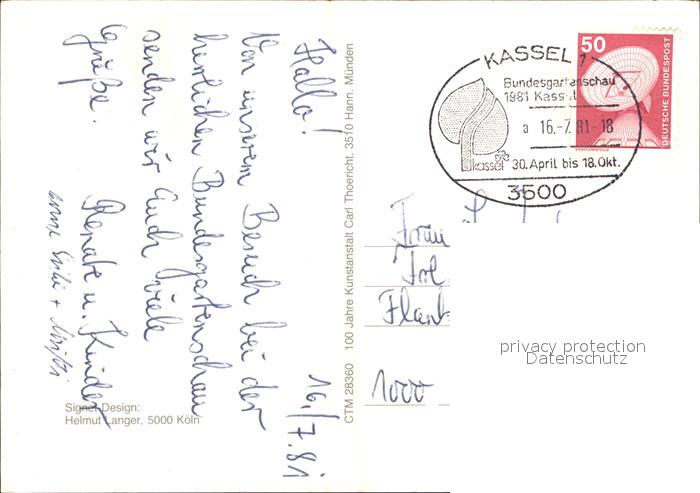 Hallo!
Von unserem Besuch bei der
herrlichen Bundesgartenschau
senden wir Euch viele
Grüße.
Renate u. Kinder
16./7.81
Signet-Design:
Helmut Langer, 5000 Köln
CTM 28360 100 Jahre Kunstanstalt Carl Thoericht, 3510 Hann. Münden
KASSEL 1
Bundesgartenschau
1981 Kassel
a 16.-7.81-18
kassel
30. April bis 18. Okt.
3500
50
DEUTSCHE BUNDESPOST
Frau
1000
privacy protection
Datenschutz